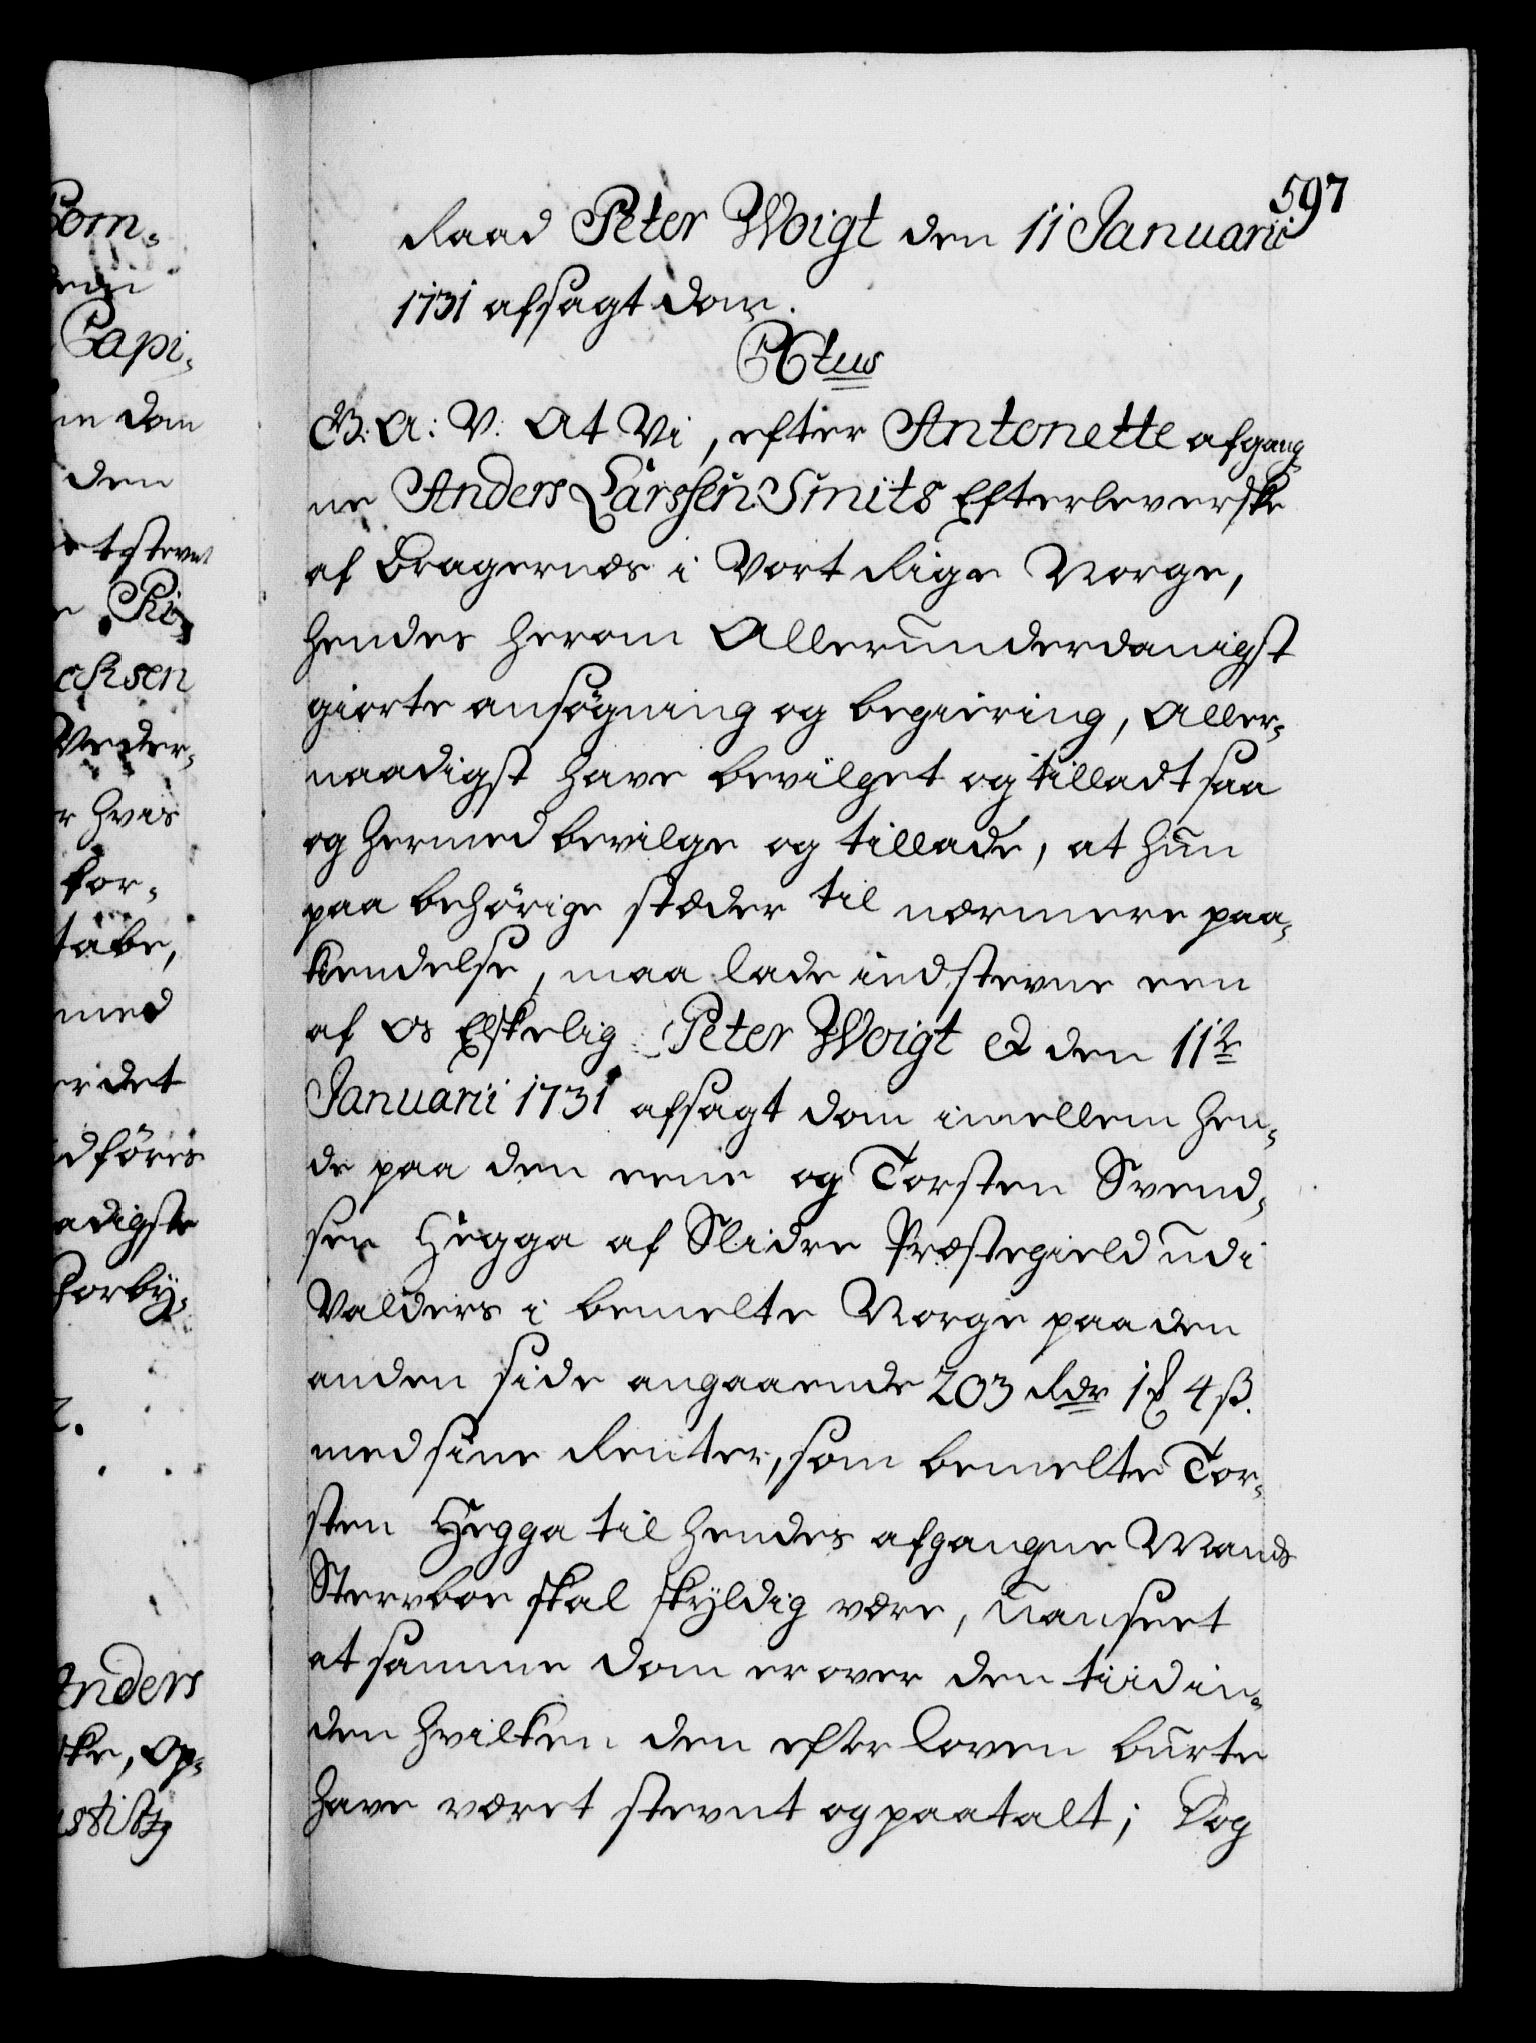 597
Raad Peter Woigt den 11 Januarii
1731 afsagt dom.
CXtus
G: A: V: At Vi, efter Antonette afgang¬
ne Anders Larssen Smits Efterleverske
af Bragernes i Vort Rige Norge,
hendes herom Allerunderdanigst
giorte ansøgning og begiering, Aller¬
naadigst have bevilget og tilladt saa
og hermed bevilge og tillade, at hun
paa behörige stæder til nærmere paa¬
kiendelse, maa lade indstevne een
af Os Elskelig Peter Woigt & den 11te
Januarii 1731 afsagt dom imellem hen¬
de paa den eene og Torsten Svend¬
sen Hegga af Slidre Præstegield udi
Valders i bemelte Norge paa den
anden side angaaende 203 Rdr 1 ℔ 4 ß.
med sine Renter, som bemelte Tor¬
sten Hegga til hendes afgangne Mands
Stervboe skal skyldig være, uanseet
at samme dom er over den tiid in¬
den hvilken den efter loven burte
have været stevnt og paatalt; Dog
Com¬
Capi¬
den
Veder¬
hvis
for¬
tabe,
med
det
Anders